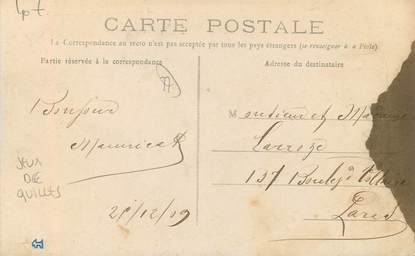 CARTE POSTALE
La Correspondance au recto n'est pas acceptée par tous les pays étrangers (se renseigner à la Poste)
Partie réservée à la correspondance
Adresse du destinataire
Bonjour
Maurice
21/12/09
Monsieur et Madame
137 Boul
Paris
JEUX
DE
QUILLES